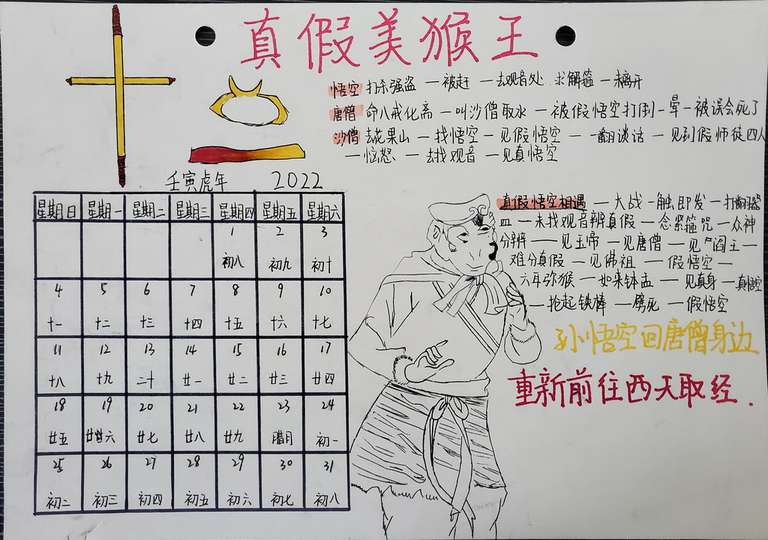 真假美猴王
悟空 打杀强盗 — 被赶 — 去观音处 求解箍 — 未离开
唐僧 命八戒化斋 — 叫沙僧取水 — 被假悟空打倒 — 晕 — 被误会死了
沙僧 去花果山 — 找悟空 — 见假悟空 — 一翻谈话 — 见到假师徒四人
— 恼怒 — 去找观音 — 见真悟空
壬寅虎年 2022
星期日 星期一 星期二 星期三 星期四 星期五 星期六
1 2 3
初八 初九 初十
4 5 6 7 8 9 10
十一 十二 十三 十四 十五 十六 十七
11 12 13 14 15 16 17
十八 十九 二十 廿一 廿二 廿三 廿四
18 19 20 21 22 23 24
廿五 廿六 廿七 廿八 廿九 腊月 初一
25 26 27 28 29 30 31
初二 初三 初四 初五 初六 初七 初八
真假悟空相遇 — 大战一触即发 — 打翻器
皿 — 未找观音辨真假 — 念紧箍咒 — 众神
分辨 — 见玉帝 — 见唐僧 — 见阎王 —
难分真假 — 见佛祖 — 假悟空 —
六耳弥猴 — 如来钵盂 — 见真身 — 真悟空
— 抡起铁棒 — 劈死 — 假悟空
孙悟空回唐僧身边
重新前往西天取经.